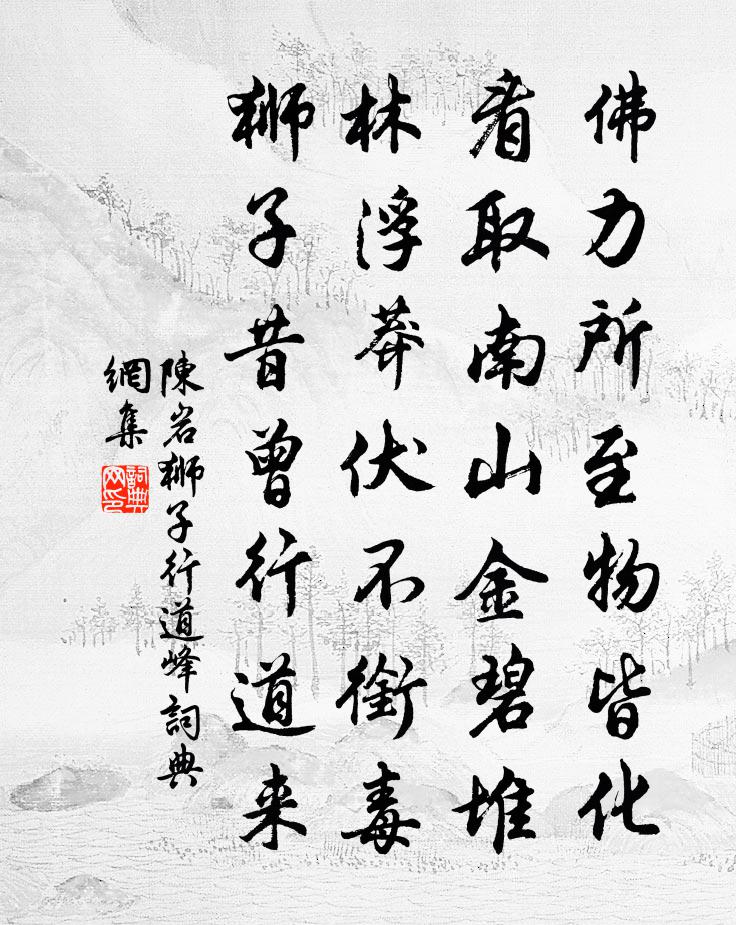 佛力所至物皆化
看取南山金碧堆
林浮莽伏不銜毒
狮子昔曾行道来
陳岩狮子行道峰詞典
網集
詞典
网印